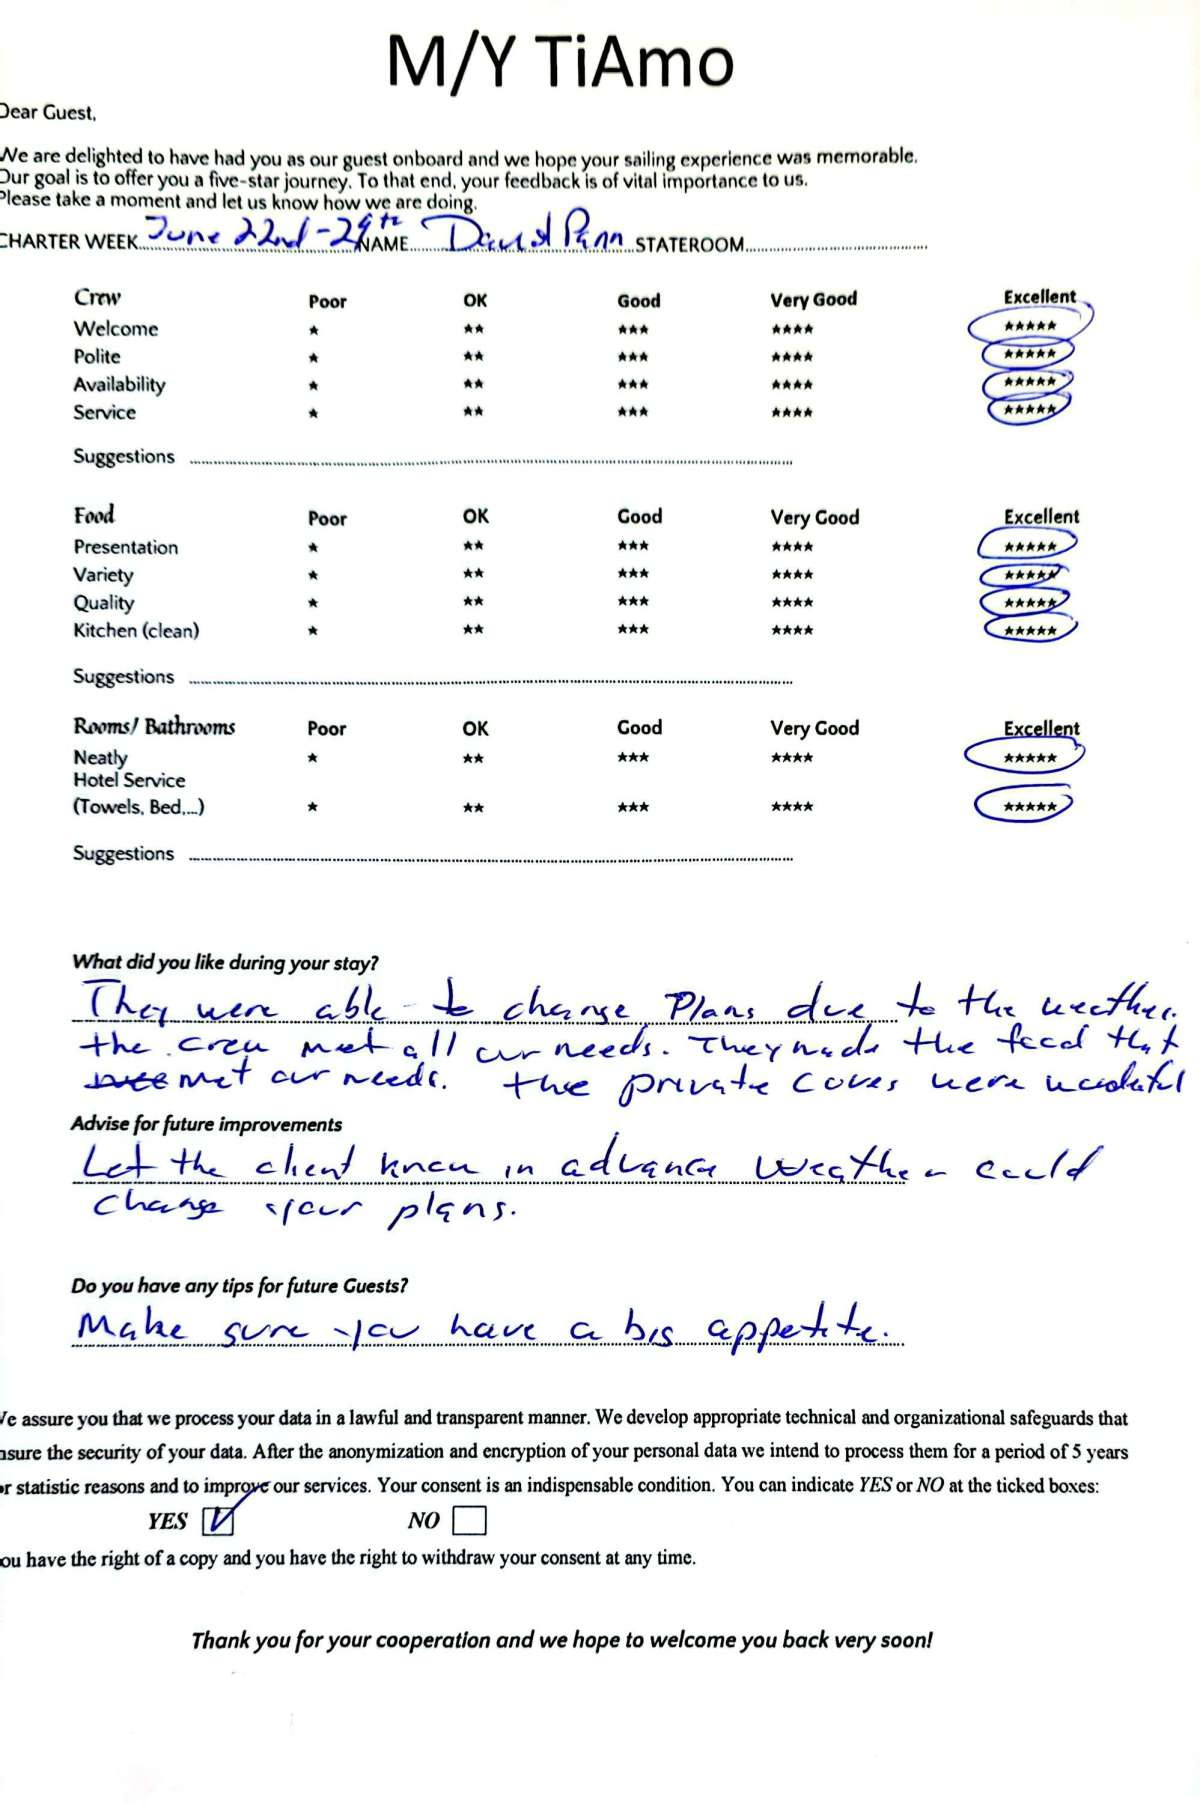 M/Y TiAmo
Dear Guest,
We are delighted to have had you as our guest onboard and we hope your sailing experience was memorable.
Our goal is to offer you a five-star journey. To that end, your feedback is of vital importance to us.
Please take a moment and let us know how we are doing.
CHARTER WEEK June 22nd - 29th NAME David Penn STATEROOM
Crew Poor OK Good Very Good Excellent
Welcome ★ ★★ ★★★ ★★★★ ★★★★★
Polite ★ ★★ ★★★ ★★★★ ★★★★★
Availability ★ ★★ ★★★ ★★★★ ★★★★★
Service ★ ★★ ★★★ ★★★★ ★★★★★
Suggestions
Food Poor OK Good Very Good Excellent
Presentation ★ ★★ ★★★ ★★★★ ★★★★★
Variety ★ ★★ ★★★ ★★★★ ★★★★★
Quality ★ ★★ ★★★ ★★★★ ★★★★★
Kitchen (clean) ★ ★★ ★★★ ★★★★ ★★★★★
Suggestions
Rooms/ Bathrooms Poor OK Good Very Good Excellent
Neatly ★ ★★ ★★★ ★★★★ ★★★★★
Hotel Service
(Towels, Bed,...) ★ ★★ ★★★ ★★★★ ★★★★★
Suggestions
What did you like during your stay?
They were able to change Plans due to the weather.
the crew met all our needs. They made the food that
met our needs. the private coves were wonderful
Advise for future improvements
Let the client know in advance weather could
change your plans.
Do you have any tips for future Guests?
Make sure you have a big appetite.
We assure you that we process your data in a lawful and transparent manner. We develop appropriate technical and organizational safeguards that
ensure the security of your data. After the anonymization and encryption of your personal data we intend to process them for a period of 5 years
for statistic reasons and to improve our services. Your consent is an indispensable condition. You can indicate YES or NO at the ticked boxes:
YES NO
You have the right of a copy and you have the right to withdraw your consent at any time.
Thank you for your cooperation and we hope to welcome you back very soon!